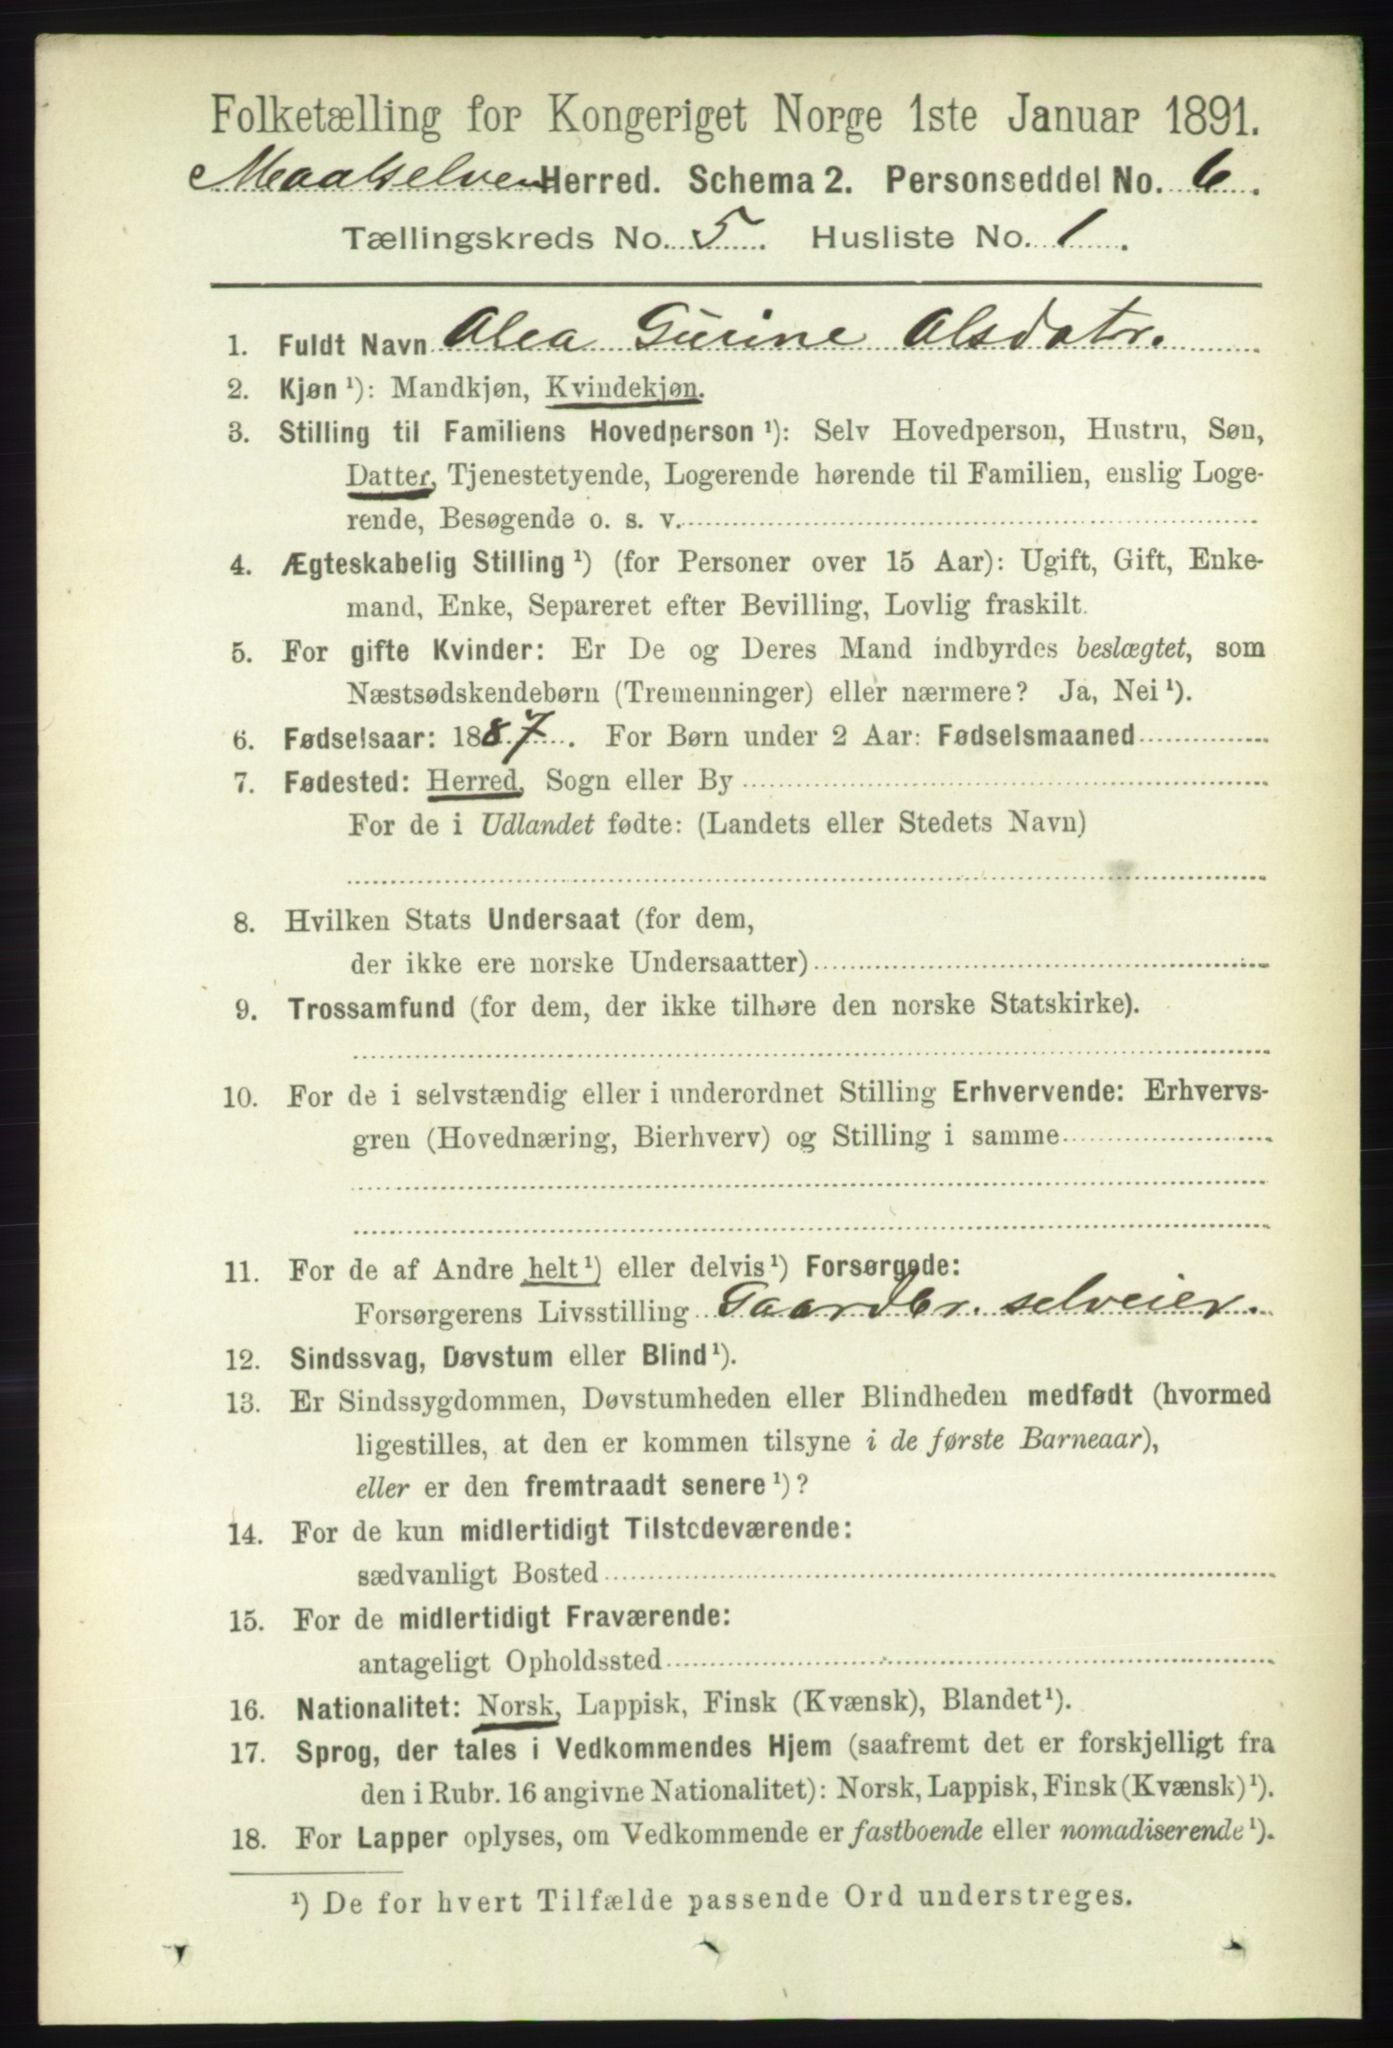 Folketælling for Kongeriget Norge 1ste Januar 1891.
Maalselven Herred. Schema 2. Personseddel No. 6.
Tællingskreds No. 5. Husliste No. 1.
1. Fuldt Navn Olea Gurine Olsdatr.
2. Kjøn ¹): Mandkjøn, Kvindekjøn.
3. Stilling til Familiens Hovedperson ¹): Selv Hovedperson, Hustru, Søn,
Datter, Tjenestetyende, Logerende hørende til Familien, enslig Loge-
rende, Besøgende o. s. v.
4. Ægteskabelig Stilling ¹) (for Personer over 15 Aar): Ugift, Gift, Enke-
mand, Enke, Separeret efter Bevilling, Lovlig fraskilt.
5. For gifte Kvinder: Er De og Deres Mand indbyrdes beslægtet, som
Næstsødskendebørn (Tremenninger) eller nærmere? Ja, Nei ¹).
6. Fødselsaar: 1887. For Børn under 2 Aar: Fødselsmaaned
7. Fødested: Herred, Sogn eller By
For de i Udlandet fødte: (Landets eller Stedets Navn)
8. Hvilken Stats Undersaat (for dem,
der ikke ere norske Undersaatter)
9. Trossamfund (for dem, der ikke tilhøre den norske Statskirke).
10. For de i selvstændig eller i underordnet Stilling Erhvervende: Erhvervs-
gren (Hovednæring, Bierhverv) og Stilling i samme
11. For de af Andre helt ¹) eller delvis ¹) Forsørgede:
Forsørgerens Livsstilling Gaardbr. selveier.
12. Sindssvag, Døvstum eller Blind ¹).
13. Er Sindssygdommen, Døvstumheden eller Blindheden medfødt (hvormed
ligestilles, at den er kommen tilsyne i de første Barneaar),
eller er den fremtraadt senere ¹)?
14. For de kun midlertidigt Tilstedeværende:
sædvanligt Bosted
15. For de midlertidigt Fraværende:
antageligt Opholdssted
16. Nationalitet: Norsk, Lappisk, Finsk (Kvænsk), Blandet ¹).
17. Sprog, der tales i Vedkommendes Hjem (saafremt det er forskjelligt fra
den i Rubr. 16 angivne Nationalitet): Norsk, Lappisk, Finsk (Kvænsk) ¹).
18. For Lapper oplyses, om Vedkommende er fastboende eller nomadiserende ¹).
¹) De for hvert Tilfælde passende Ord understreges.